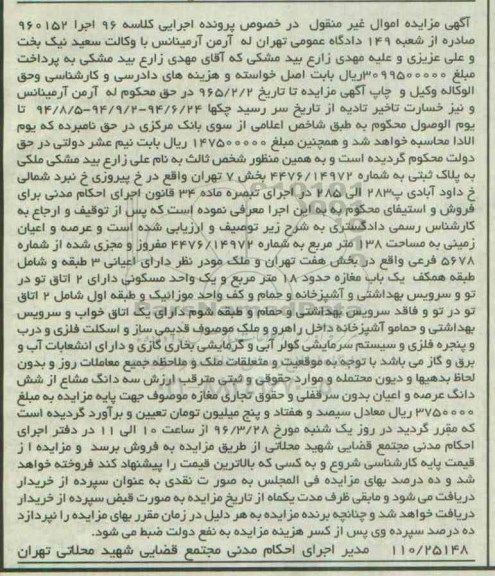 آگهی مزایده اموال غیر منقول در خصوص پرونده اجرایی کلاسه ۹۶ اجرا ۹۶۰۱۵۲
صادره از شعبه ۱۴۹ دادگاه عمومی تهران له آرمن آرمیناس با وکالت سعید نیک بخت
و علی عزیزی و علیه مهدی زارع بید مشکی که آقای مهدی زارع بید مشکی به پرداخت
مبلغ ۳۰۹۹۵۰۰۰۰۰ریال بابت اصل خواسته و هزینه های دادرسی و کارشناسی وحق
الوکاله وکیل و چاپ آگهی مزایده تا تاریخ ۹۶۵/۲/۲ در حق محکوم له آرمن آرمیناس
و نیز خسارت تاخیر تادیه از تاریخ سر رسید چکها ۹۴/۶/۲۴-۹۴/۹/۲-۹۴/۸/۵ تا
یوم الوصول محکوم به طبق شاخص اعلامی از سوی بانک مرکزی در حق نامبرده که یوم
الادا محاسبه خواهد شد و همچنین مبلغ ۱۴۷۵۰۰۰۰۰ ریال بابت نیم عشر دولتی در حق
دولت محکوم گردیده است و به همین منظور شخص ثالث به نام علی زارع بید مشکی ملکی
به پلاک ثبتی به شماره ۴۴۷۶/۱۴۹۷۲ بخش ۷ تهران واقع در خ پیروزی خ نبرد شمالی
خ داود آبادی پ۲۸۳ الی ۲۸۵ در اجرای تبصره ماده ۳۴ قانون اجرای احکام مدنی برای
فروش و استیفای محکوم به به این اجرا معرفی نموده است که پس از توقیف و ارجاع به
کارشناس رسمی دادگستری به شرح زیر توصیف و ارزیابی شده است و عرصه و اعیان
زمینی به مساحت ۱۳۸ متر مربع به شماره ۴۴۷۶/۱۴۹۷۲ مفروز و مجزی شده از شماره
۵۶۷۸ فرعی واقع در بخش هفت تهران و ملک مودر نظر دارای اعیانی ۳ طبقه و شامل
طبقه همکف یک باب مغازه حدود ۱۸ متر مربع و یک واحد مسکونی دارای ۲ اتاق تو در
تو و سرویس بهداشتی و آشپزخانه و حمام و کف واحد موزائیک و طبقه اول شامل ۲ اتاق
تو در تو و فاقد سرویس بهداشتی و حمام و طبقه سوم دارای یک اتاق خواب و سرویس
بهداشتی و حمامو آشپزخانه داخل راهرو و ملک موصوف قدیمی ساز و اسکلت فلزی و درب
و پنجره فلزی و سیستم سرمایشی کولر آبی و گرمایشی بخاری گازی و دارای انشعابات آب و
برق و گاز می باشد با توجه به موقعیت و متعلقات ملک و ملاحظه جمیع معاملات روز و بدون
لحاظ بدهیها و دیون محتمله و موارد حقوقی و ثبتی مترقب ارزش سه دانگ مشاع از شش
دانگ عرصه و اعیان بدون سرقفلی و حقوق تجاری مغازه موصوف جهت پایه مزایده به مبلغ
۳۷۵۰۰۰۰ ریال معادل سیصد و هفتاد و پنج میلیون تومان تعیین و برآورد گردیده است
که مقرر گردید در روز یک شنبه مورخ ۹۶/۳/۲۸ از ساعت ۱۰ الی ۱۱ در دفتر اجرای
احکام مدنی مجتمع قضایی شهید محلاتی از طریق مزایده به فروش برسد و مزایده ا ز
قیمت پایه کارشناسی شروع و به کسی که بالاترین قیمت را پیشنهاد کند فروخته خواهد
شد و ده درصد بهای مزایده فی المجلس به صور ت نقدی به عنوان سپرده از خریدار
دریافت می شود و مابقی ظرف مدت یکماه از تاریخ مزایده به صورت قبض سپرده از خریدار
دریافت خواهد شد و چنانچه برنده مزایده به هر دلیل در زمان مقرر بهای مزایده را نپردازد
ده درصد سپرده وی پس از کسر هزینه مزایده به نفع دولت ضبط می شود.
۱۱۰/۲۵۱۴۸ مدیر اجرای احکام مدنی مجتمع قضایی شهید محلاتی تهران